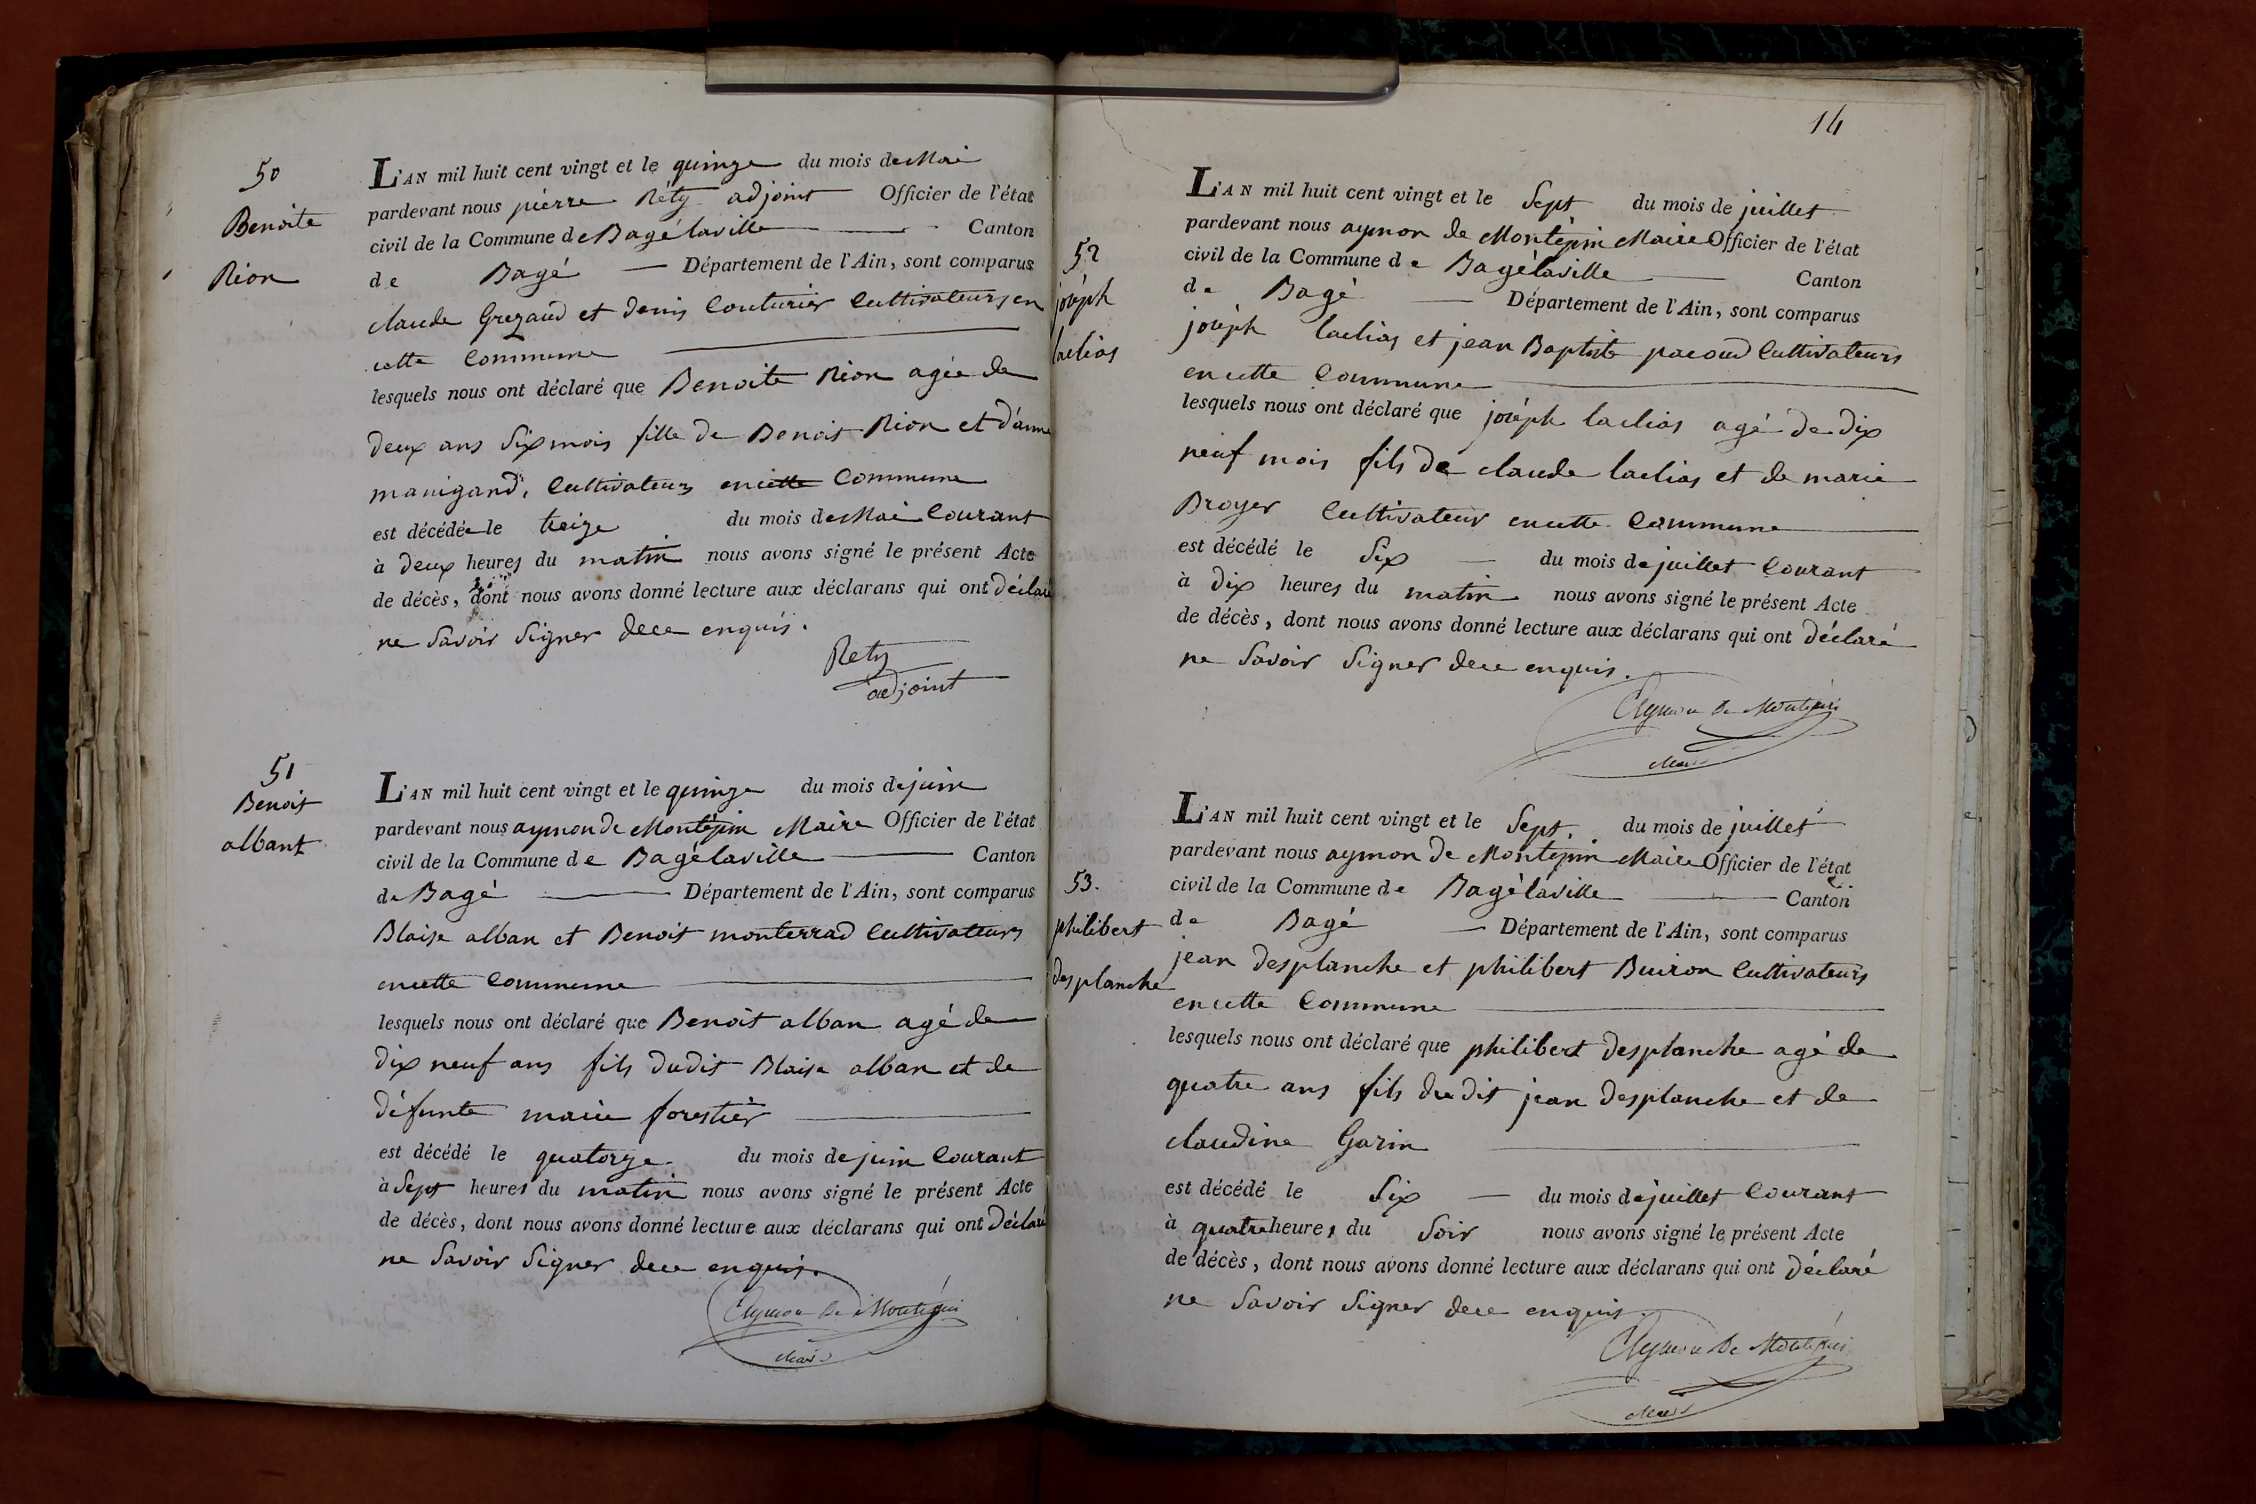 50
Benoite
Rion
L'AN mil huit cent vingt et le quinze du mois de Mai
pardevant nous pierre Réty adjoint Officier de l'état
civil de la Commune de Bagélaville Canton
de Bagé Département de l'Ain, sont comparus
claude Grezaud et denis Couturier Cultivateurs en
cette Commune
lesquels nous ont déclaré que Benoite Rion agée de
deux ans Six mois fille de Benoit Rion et d'anne
manigand, Cultivateurs en cette Commune
est décédée le treize du mois de Mai Courant
à deux heures du matin nous avons signé le présent Acte
de décès, dont nous avons donné lecture aux déclarans qui ont déclaré
ne Savoir Signer de ce enquis.
Rety
adjoint
51
Benoit
albant
L'AN mil huit cent vingt et le quinze du mois de juin
pardevant nous aymon de Montépin Maire Officier de l'état
civil de la Commune de Bagélaville Canton
de Bagé Département de l'Ain, sont comparus
Blaise alban et Benoit monterrad Cultivateurs
en cette Commune
lesquels nous ont déclaré que Benoit alban agé de
dix neuf ans fils dudit Blaise alban et de
défunte marie forestier
est décédé le quatorze du mois de juin Courant
à Sept heures du matin nous avons signé le présent Acte
de décès, dont nous avons donné lecture aux déclarans qui ont déclaré
ne Savoir Signer de ce enquis.
Aymon De Montépin
Maire
14
52
joséph
laclias
L'AN mil huit cent vingt et le Sept du mois de juillet
pardevant nous aymon de Montépin Maire Officier de l'état
civil de la Commune de Bagélaville Canton
de Bagé Département de l'Ain, sont comparus
joséph laclias et jean Baptiste pacoud Cultivateurs
en cette Commune
lesquels nous ont déclaré que joséph laclias agé de dix
neuf mois fils de claude laclias et de marie
Broyer Cultivateur en cette Commune
est décédé le Six du mois de juillet Courant
à dix heures du matin nous avons signé le présent Acte
de décès, dont nous avons donné lecture aux déclarans qui ont déclaré
ne Savoir Signer de ce enquis.
Aymon De Montépin
Maire
53.
philibert
desplanche
L'AN mil huit cent vingt et le Sept. du mois de juillet
pardevant nous aymon de Montépin Maire Officier de l'état
civil de la Commune de Bagélaville Canton
de Bagé Département de l'Ain, sont comparus
jean desplanche et philibert Buiron Cultivateurs
en cette Commune
lesquels nous ont déclaré que philibert desplanche agé de
quatre ans fils dudit jean desplanche et de
claudine Garin
est décédé le Six du mois de juillet Courant
à quatre heures du Soir nous avons signé le présent Acte
de décès, dont nous avons donné lecture aux déclarans qui ont déclaré
ne Savoir Signer de ce enquis.
Aymon De Montépin
Maire